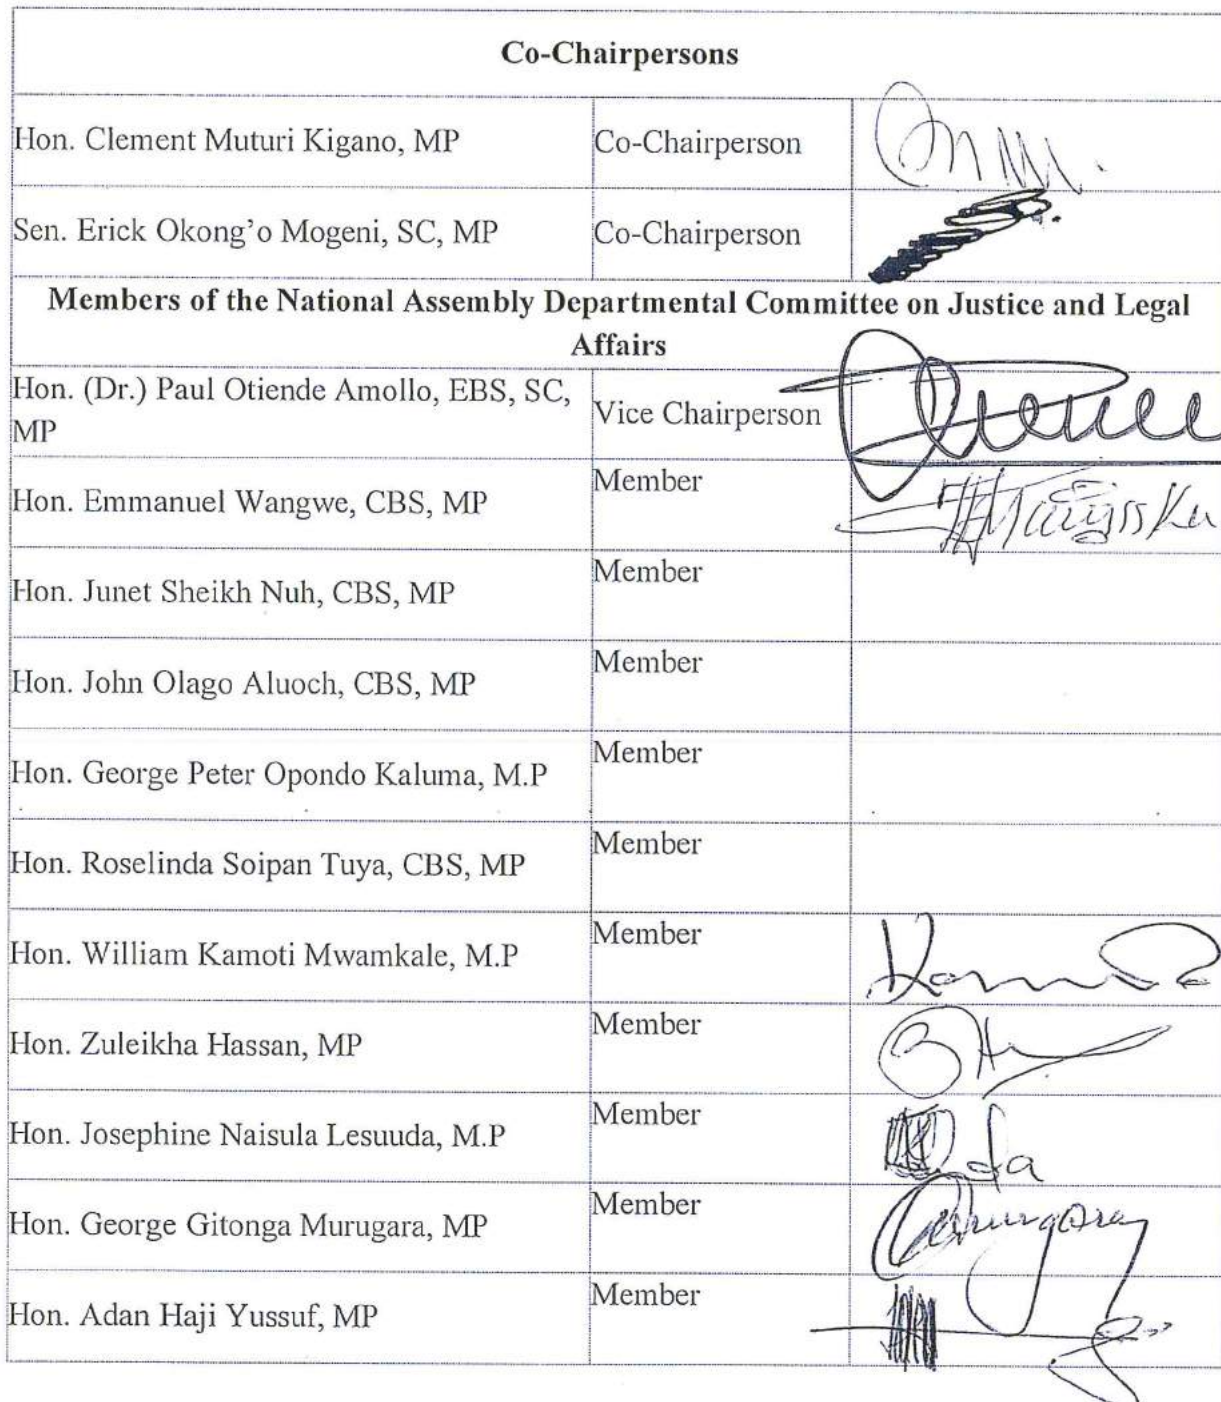 Co-Chairpersons
Hon. Clement Muturi Kigano, MP Co-Chairperson
Sen. Erick Okong’o Mogeni, SC, MP Co-Chairperson
Members of the National Assembly Departmental Committee on Justice and Legal
Affairs
Hon. (Dr.) Paul Otiende Amollo, EBS, SC,
MP Vice Chairperson
Hon. Emmanuel Wangwe, CBS, MP Member
Hon. Junet Sheikh Nuh, CBS, MP Member
Hon. John Olago Aluoch, CBS, MP Member
Hon. George Peter Opondo Kaluma, M.P Member
Hon. Roselinda Soipan Tuya, CBS, MP Member
Hon. William Kamoti Mwamkale, M.P Member
Hon. Zuleikha Hassan, MP Member
Hon. Josephine Naisula Lesuuda, M.P Member
Hon. George Gitonga Murugara, MP Member
Hon. Adan Haji Yussuf, MP Member